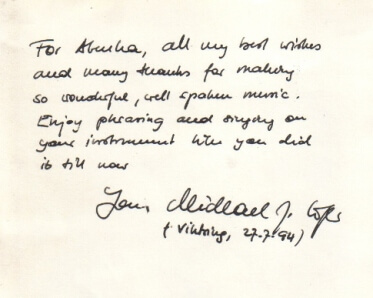 For , all my best wishes
and many thanks for making
so wonderful, well spoken music.
Enjoy phrasing and singing on
your instrument like you did
it till now
Michael J.
( Viktring, 27.7.94)